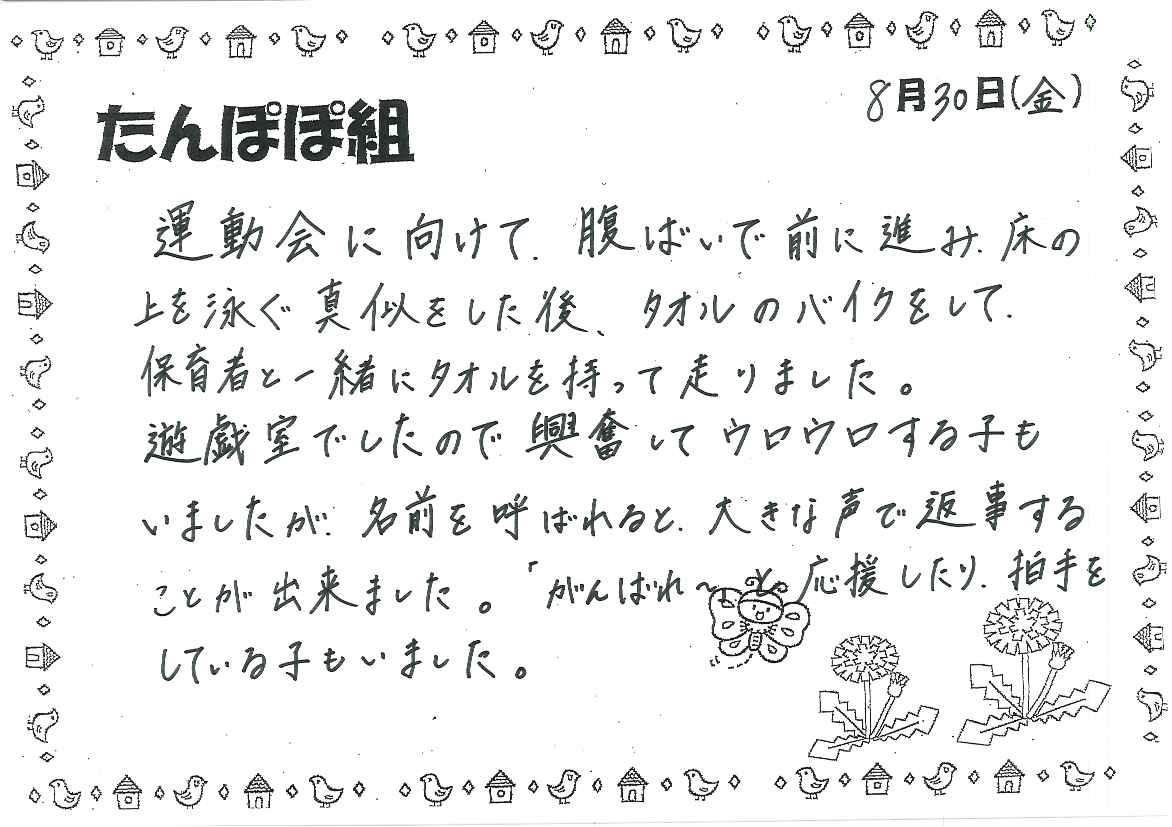 8月30日(金)
たんぽぽ組
運動会に向けて、腹ばいで前に進み、床の
上を泳ぐ真似をした後、タオルのバイクをして、
保育者と一緒にタオルを持って走りました。
遊戯室でしたので興奮してウロウロする子も
いましたが、名前を呼ばれると、大きな声で返事する
ことが出来ました。「がんばれ〜」と応援したり、拍手を
している子もいました。